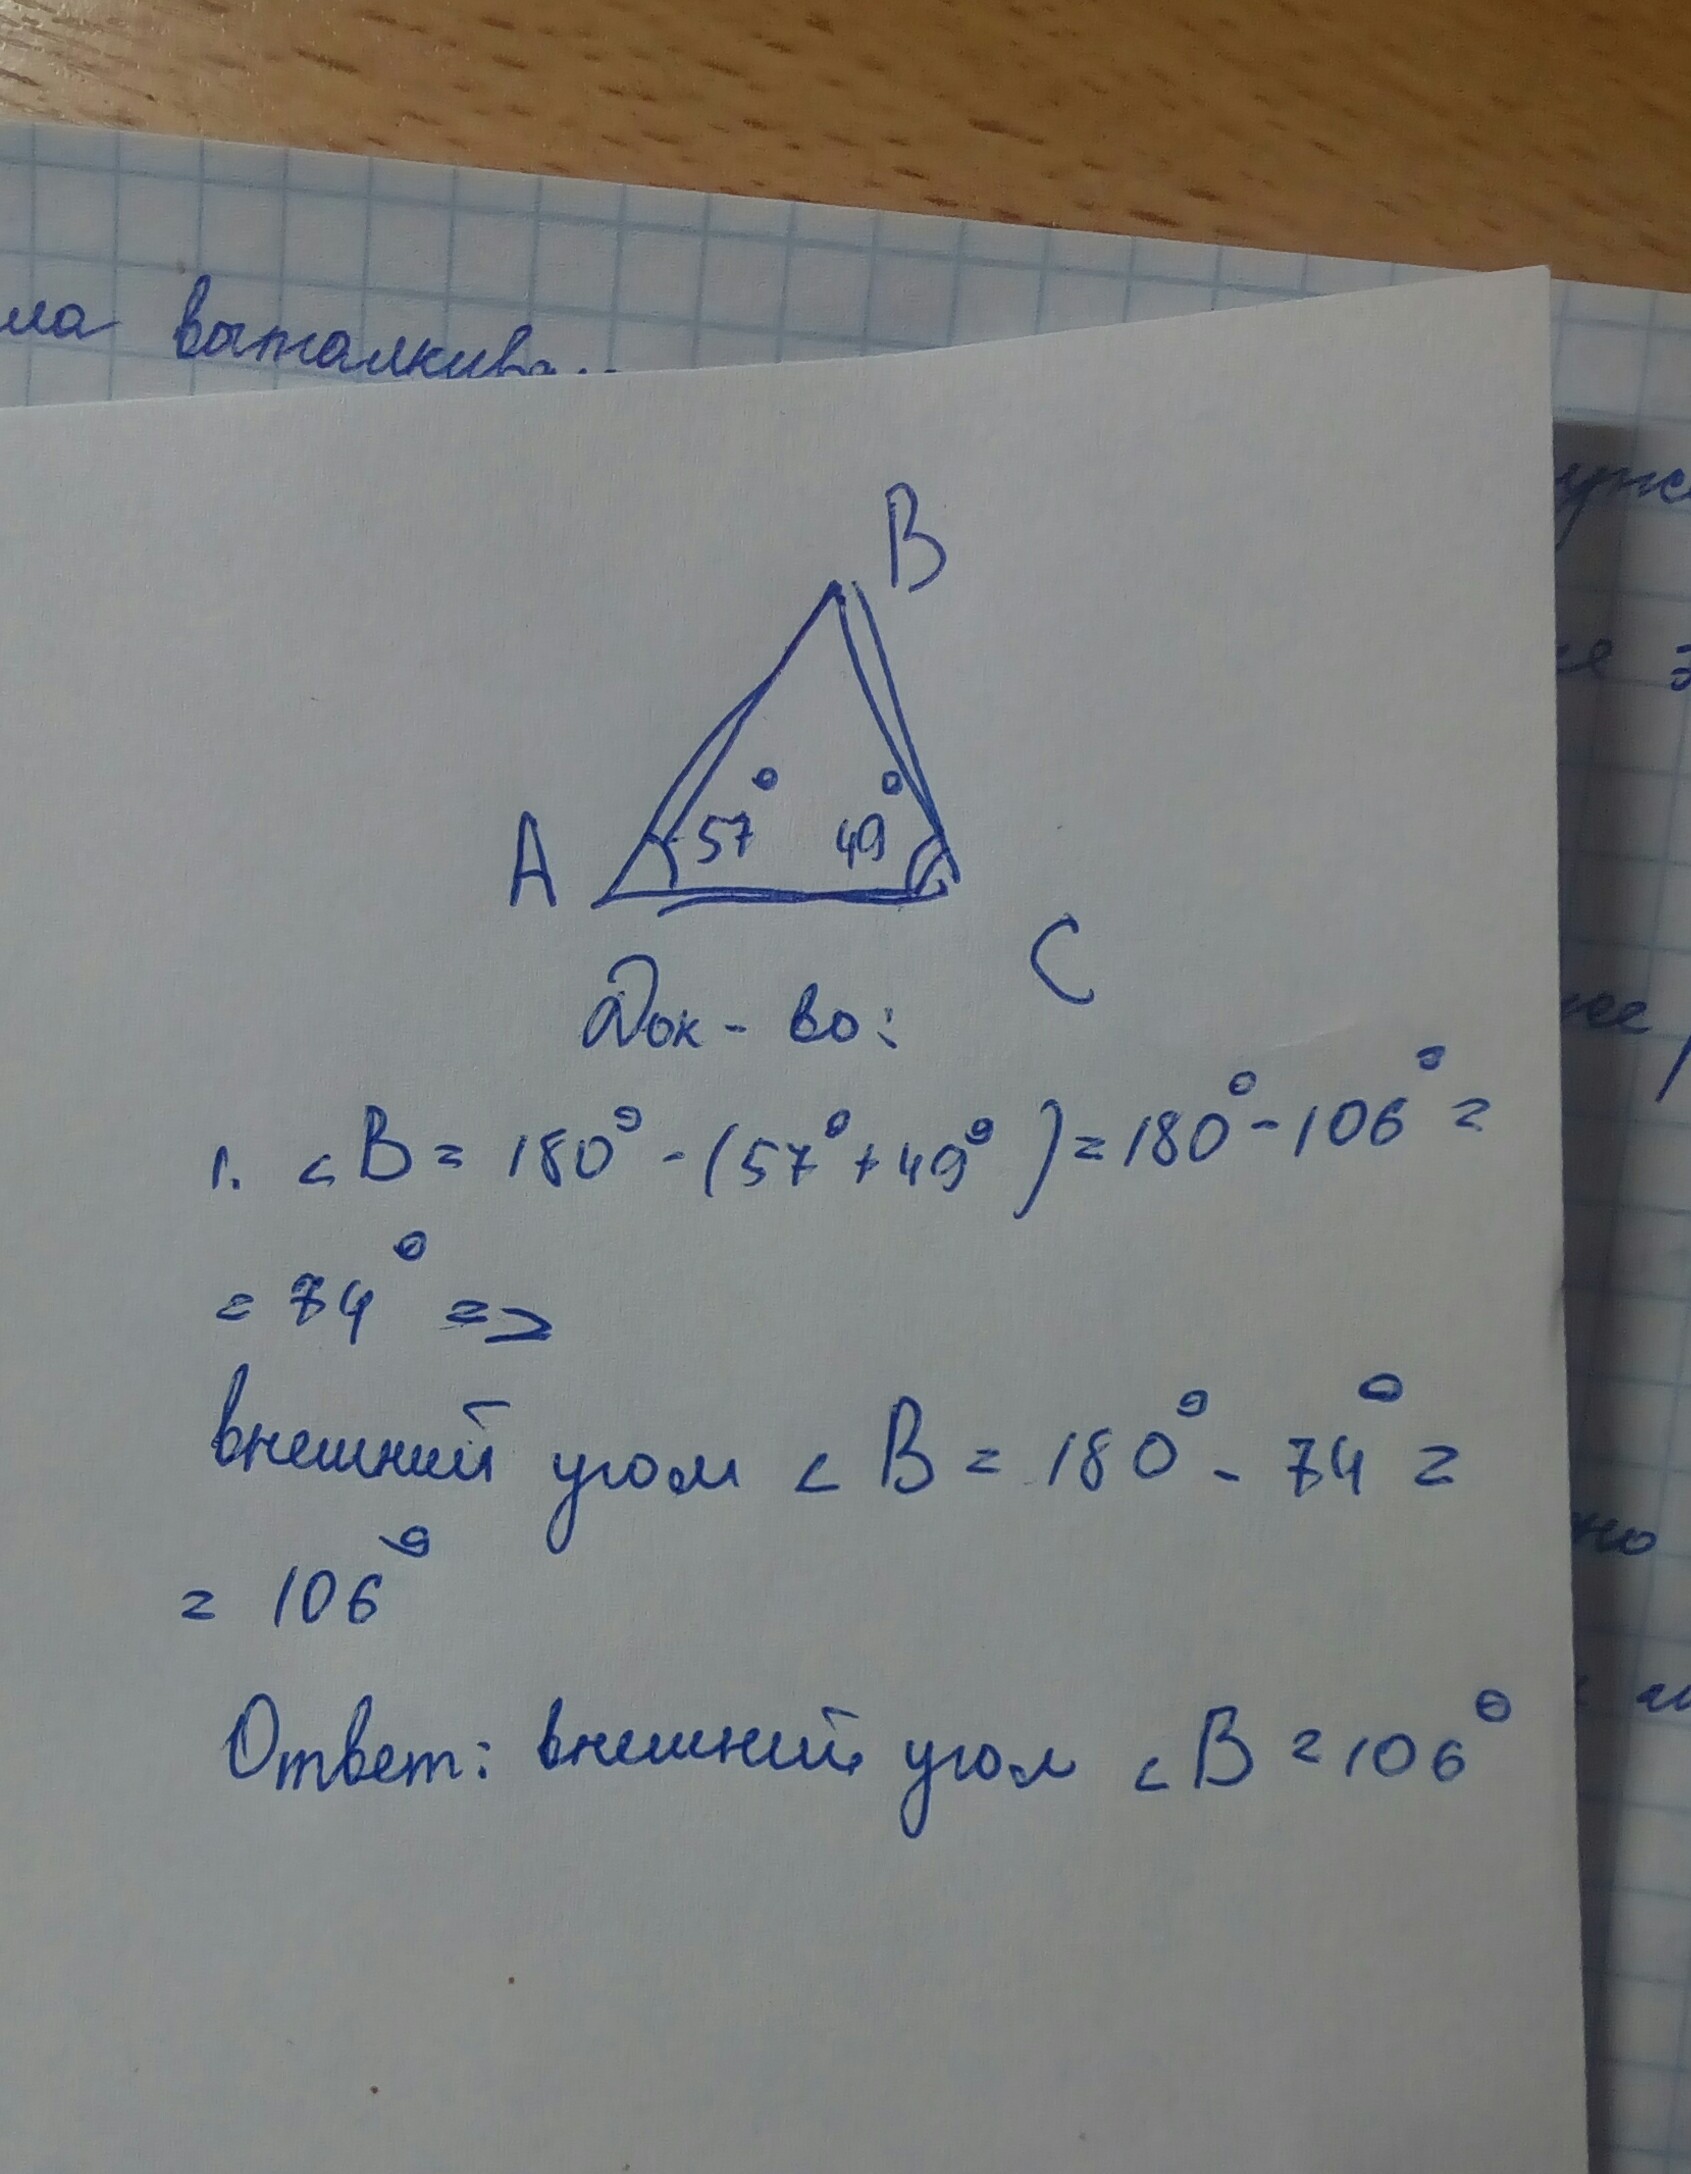 ла выталкива
B
57° 49°
A
C
Док-во:
1. ∠B = 180° - (57° + 49°) = 180° - 106° =
= 74° =>
внешний угол ∠B = 180° - 74° =
= 106°
Ответ: внешний угол ∠B = 106°